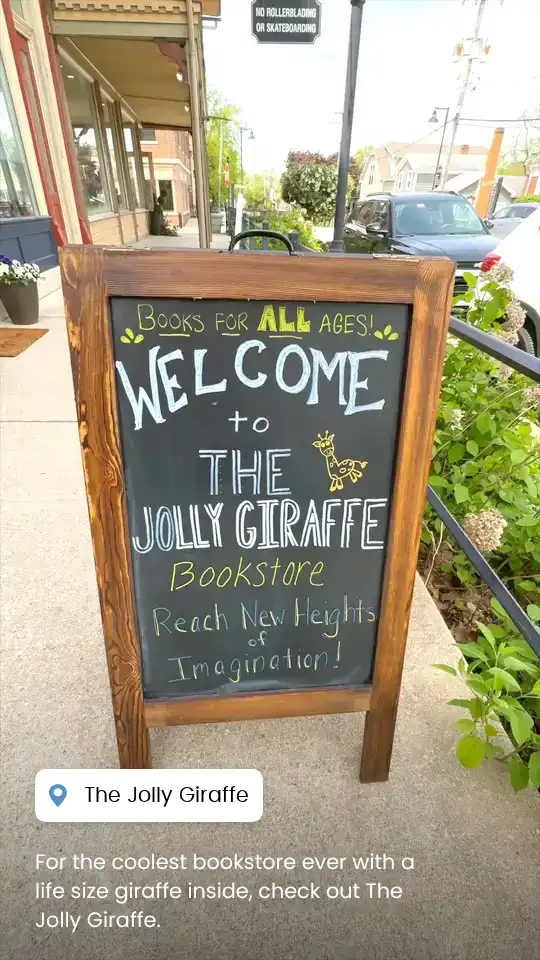 NO ROLLERBLADING
OR SKATEBOARDING
BOOKS FOR ALL AGES!
WELCOME
to
THE
JOLLY GIRAFFE
Bookstore
Reach New Heights
of
Imagination!
The Jolly Giraffe
For the coolest bookstore ever with a
life size giraffe inside, check out The
Jolly Giraffe.